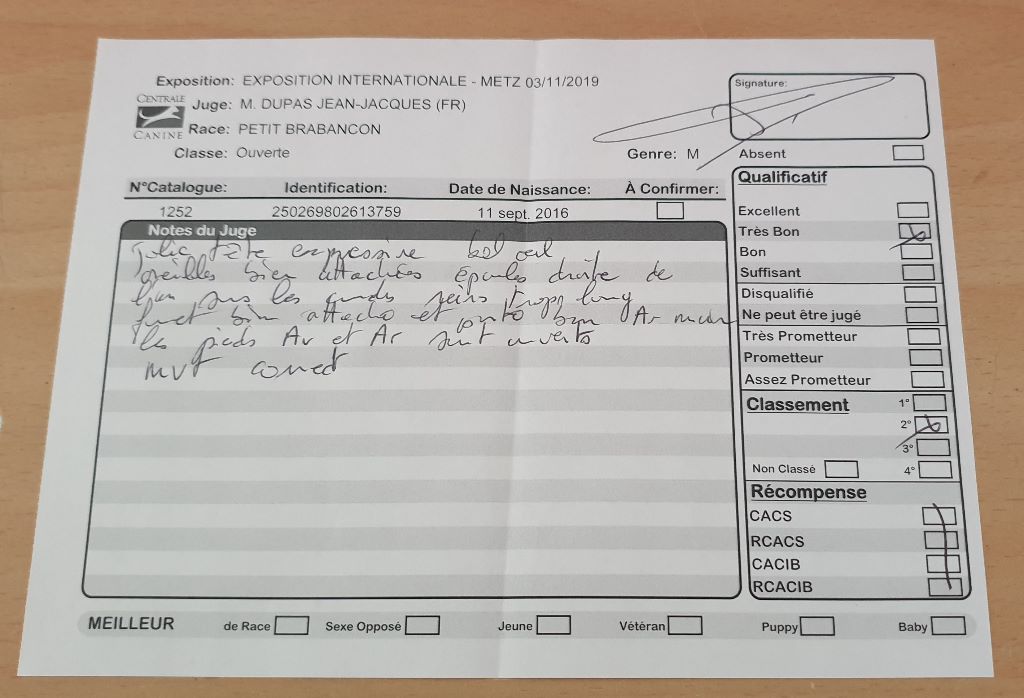 Exposition: EXPOSITION INTERNATIONALE - METZ 03/11/2019
CENTRALE CANINE
Juge: M. DUPAS JEAN-JACQUES (FR)
Race: PETIT BRABANCON
Classe: Ouverte
Genre: M
Signature:
Absent
N°Catalogue: Identification: Date de Naissance: À Confirmer:
1252 250269802613759 11 sept. 2016
Notes du Juge
Tête expressive bel œil
oreilles bien attachées épaules droite de
sur les reins long
bien attaché et Ar
les pieds Av et Ar sont ouverts
MVT correct
Qualificatif
Excellent
Très Bon
Bon
Suffisant
Disqualifié
Ne peut être jugé
Très Prometteur
Prometteur
Assez Prometteur
Classement
1°
2°
3°
Non Classé 4°
Récompense
CACS
RCACS
CACIB
RCACIB
MEILLEUR de Race Sexe Opposé Jeune Vétéran Puppy Baby